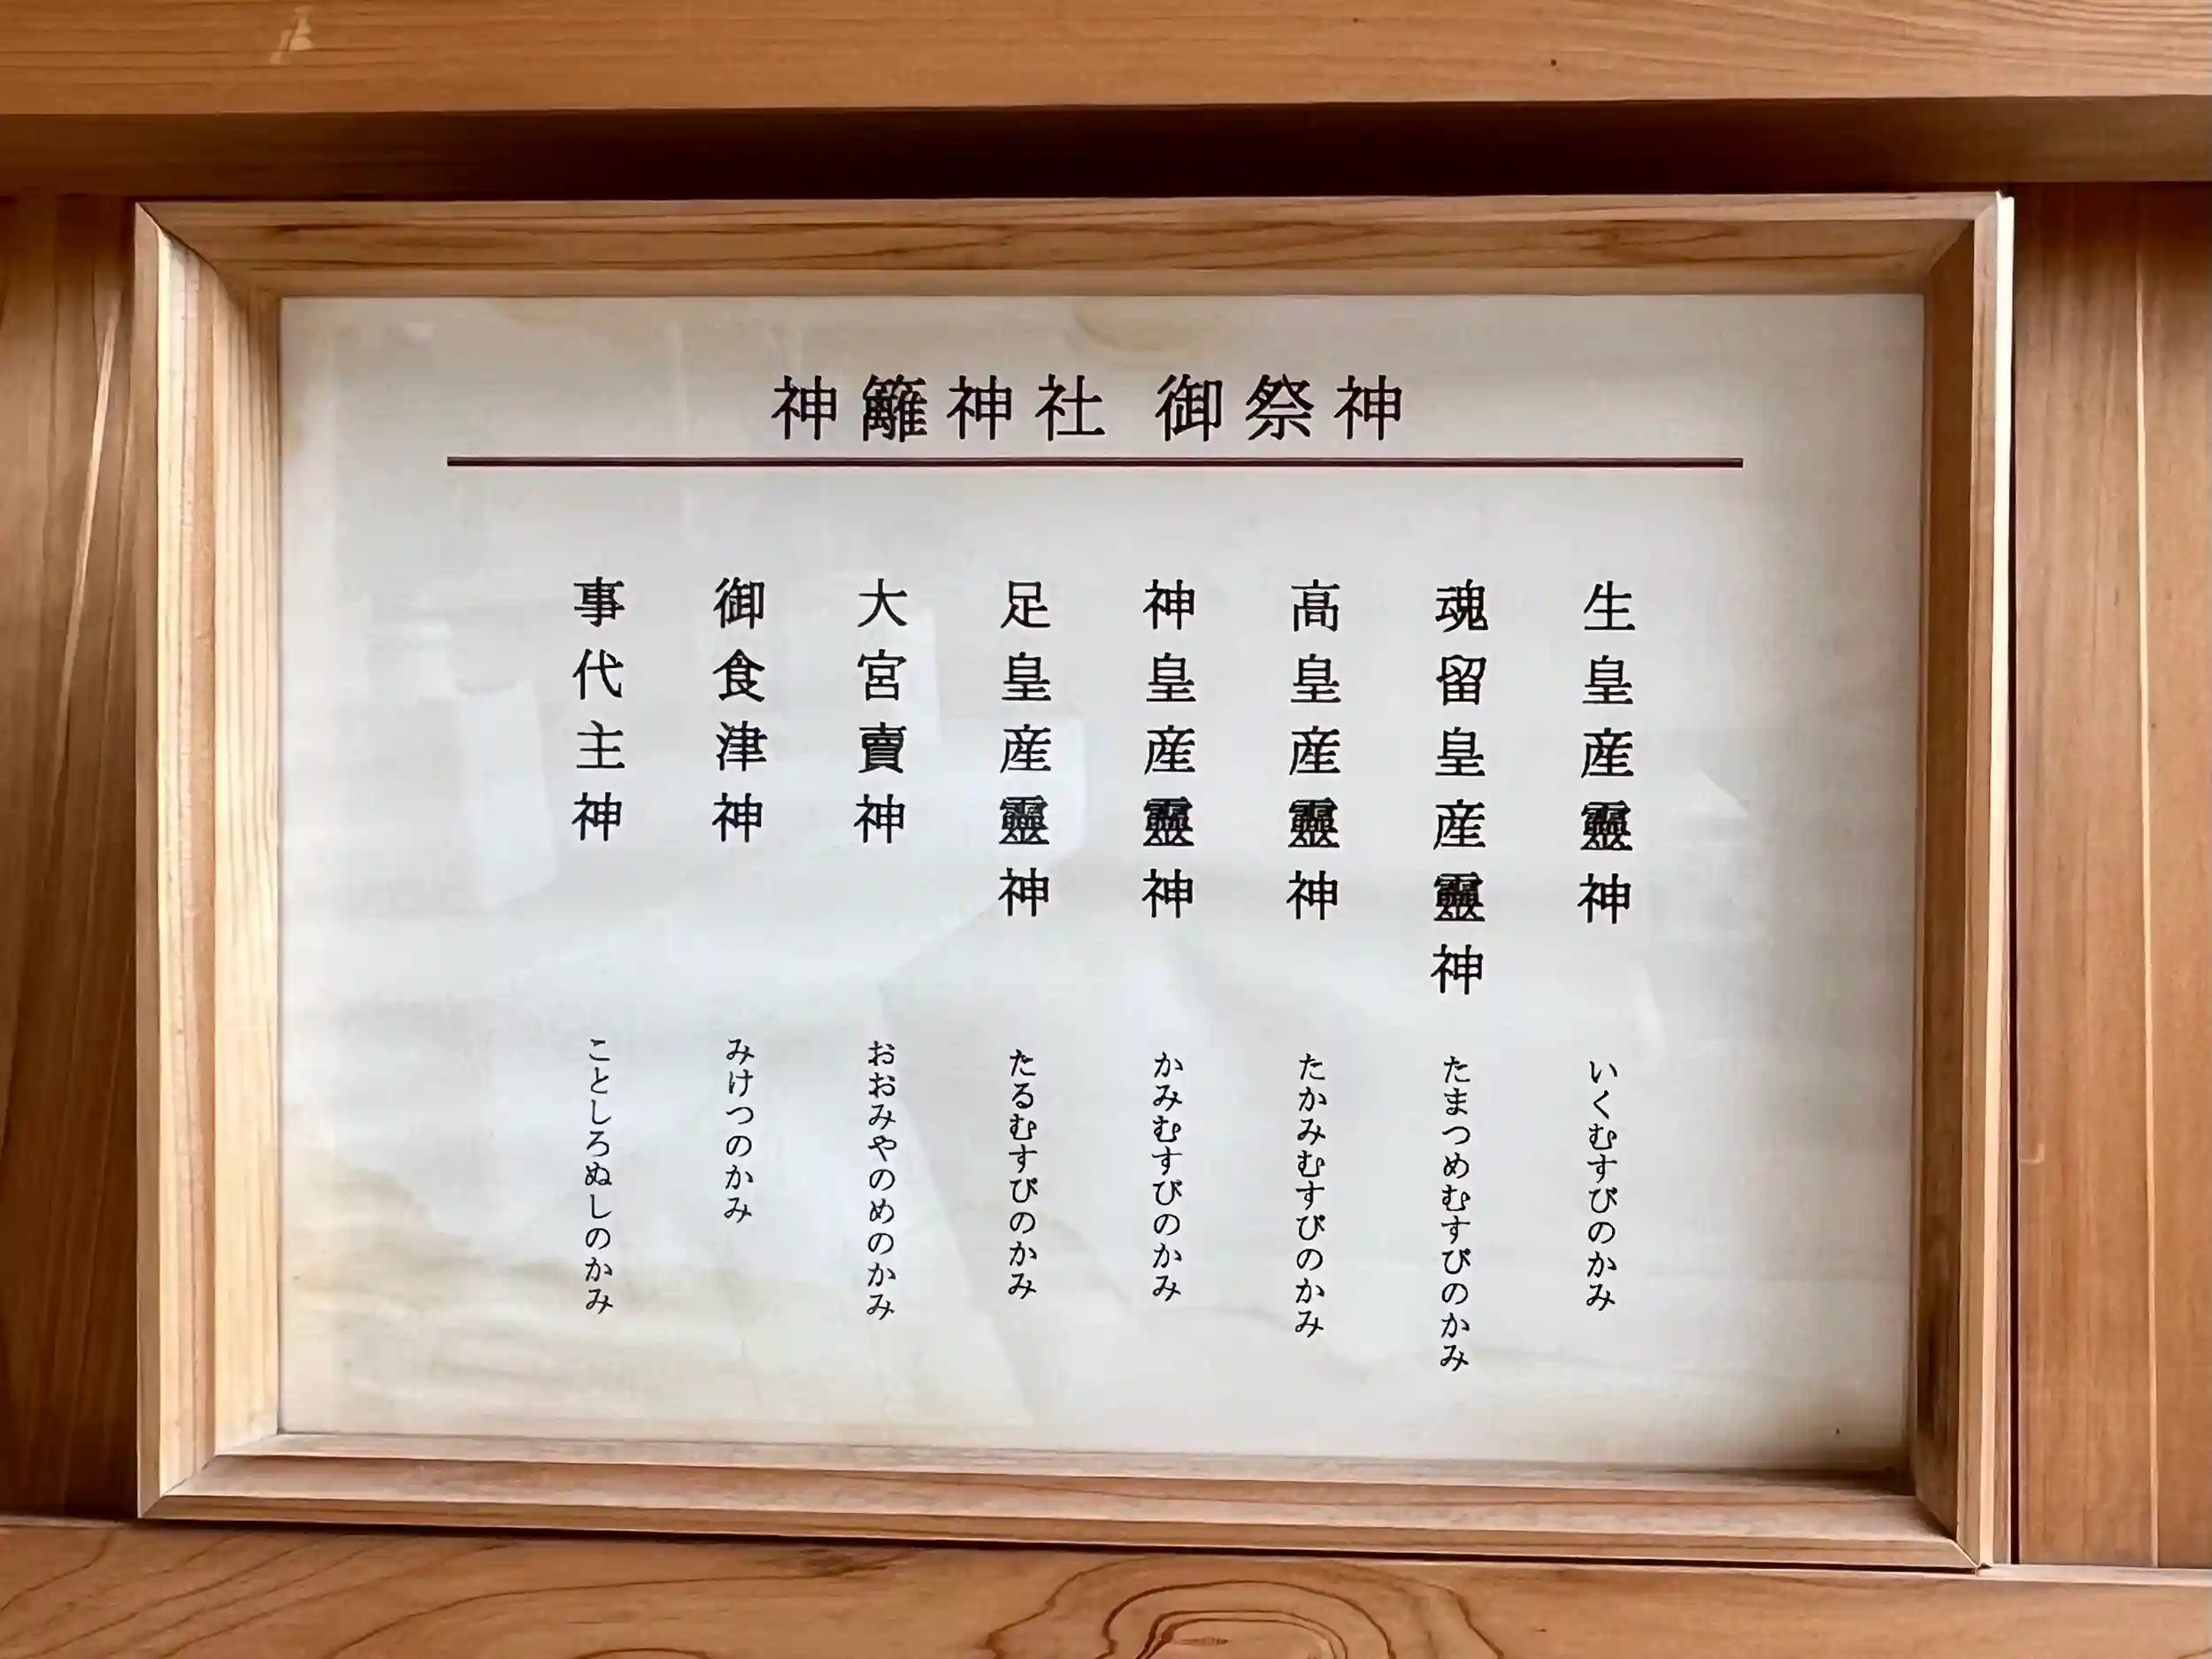 神籬神社 御祭神
生皇産靈神 いくむすびのかみ
魂留皇産靈神 たまつめむすびのかみ
高皇産靈神 たかみむすびのかみ
神皇産靈神 かみむすびのかみ
足皇産靈神 たるむすびのかみ
大宮賣神 おおみやのめのかみ
御食津神 みけつのかみ
事代主神 ことしろぬしのかみ